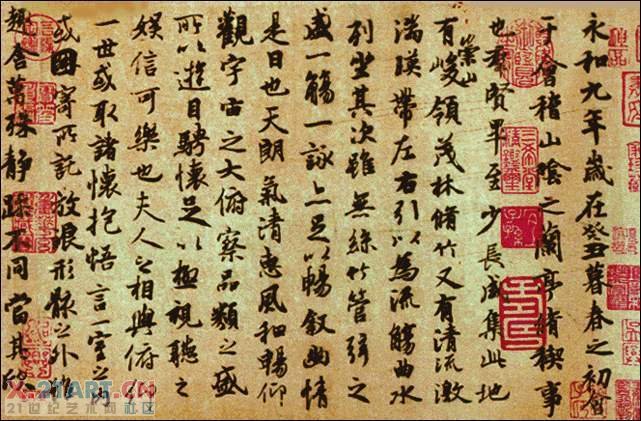 永和九年歲在癸丑暮春之初會
于會稽山陰之蘭亭脩稧事
也羣賢畢至少長咸集此地
有崇山峻領茂林脩竹又有清流激
湍暎帶左右引以為流觴曲水
列坐其次雖無絲竹管弦之
盛一觴一詠亦足以暢敘幽情
是日也天朗氣清惠風和暢仰
觀宇宙之大俯察品類之盛
所以遊目騁懷足以極視聽之
娛信可樂也夫人之相與俯仰
一世或取諸懷抱悟言一室之內
或因寄所託放浪形骸之外雖
趣舍萬殊靜躁不同當其欣
21ART.CN
21世纪艺术网社区